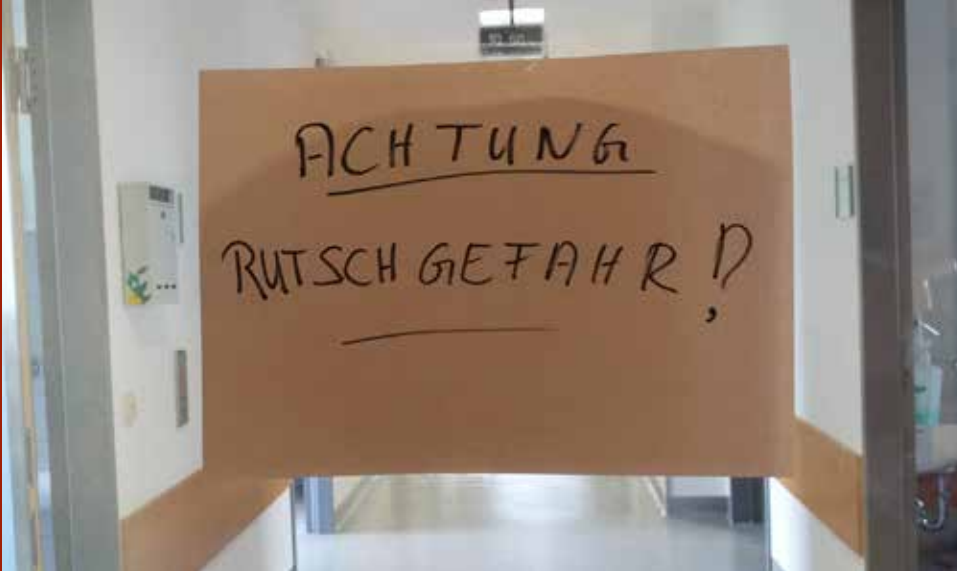 ACHTUNG
RUTSCHGEFAHR!